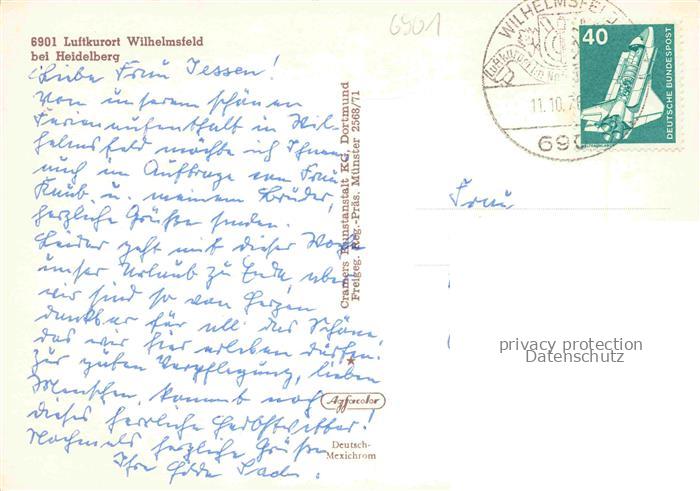 6901
6901 Luftkurort Wilhelmsfeld
bei Heidelberg
Liebe Frau Jessen!
Von unserem schönen
Ferienaufenthalt in Wil-
helmsfeld möchte ich Ihnen
auch im Auftrage von Frau
Knub u. meinem Bruder,
herzliche Grüße senden.
Leider geht mit dieser Woche
unser Urlaub zu Ende, aber
wir sind so von Herzen
dankbar für all das Schöne,
das wir hier erleben dürfen.
Zur guten Verpflegung, lieben
Menschen, kommt noch
dieses herrliche Herbstwetter!
Nochmals herzliche Grüße
Ihre
Cramers Kunstanstalt KG, Dortmund
Freigeg. Reg.-Präs. Münster 2568/71
Agfacolor
Deutsch-
Mexichrom
WILHELMSFELD
Luftkurort im
11.10.76
690
40
DEUTSCHE BUNDESPOST
Frau
privacy protection
Datenschutz